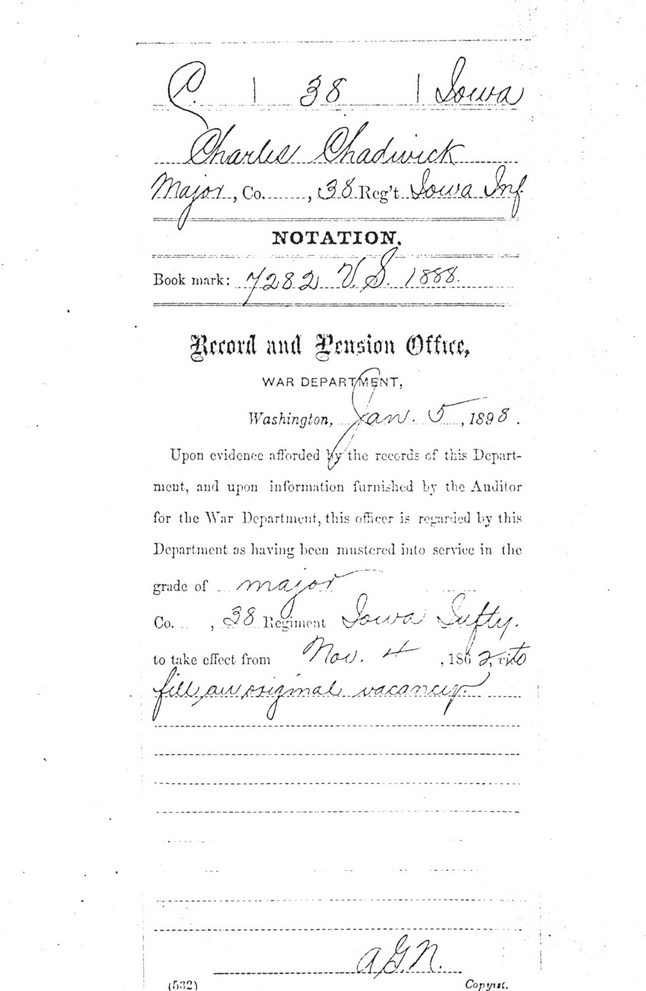 C | 38 | Iowa
Charles Chadwick
Major, Co. , 38 Reg't Iowa Inf
NOTATION.
Book mark: 7282 V.S. 1888.
Record and Pension Office,
WAR DEPARTMENT,
Washington, Jan. 5, 1898.
Upon evidence afforded by the records of this Depart-
ment, and upon information furnished by the Auditor
for the War Department, this officer is regarded by this
Department as having been mustered into service in the
grade of major
Co. , 38 Regiment Iowa Infty.
to take effect from Nov. 4, 1862, to
fill an original vacancy.
A.G.N.
(532) Copyist.